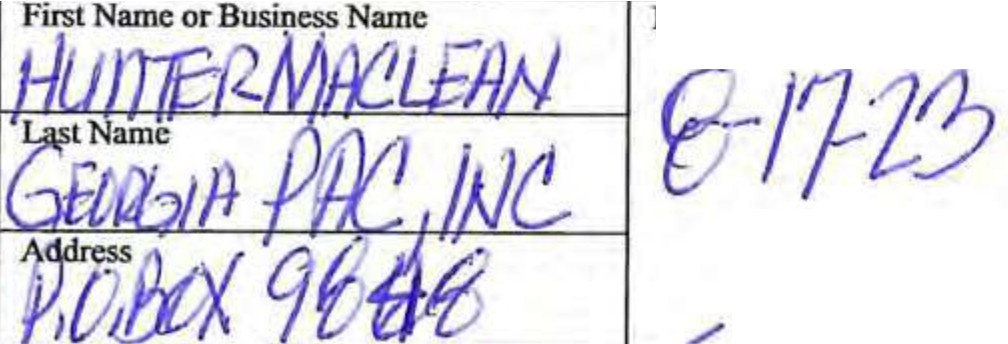 First Name or Business Name
HUNTERMACLEAN
8-17-23
Last Name
GEORGIA PAC, INC
Address
P.O. BOX 9848